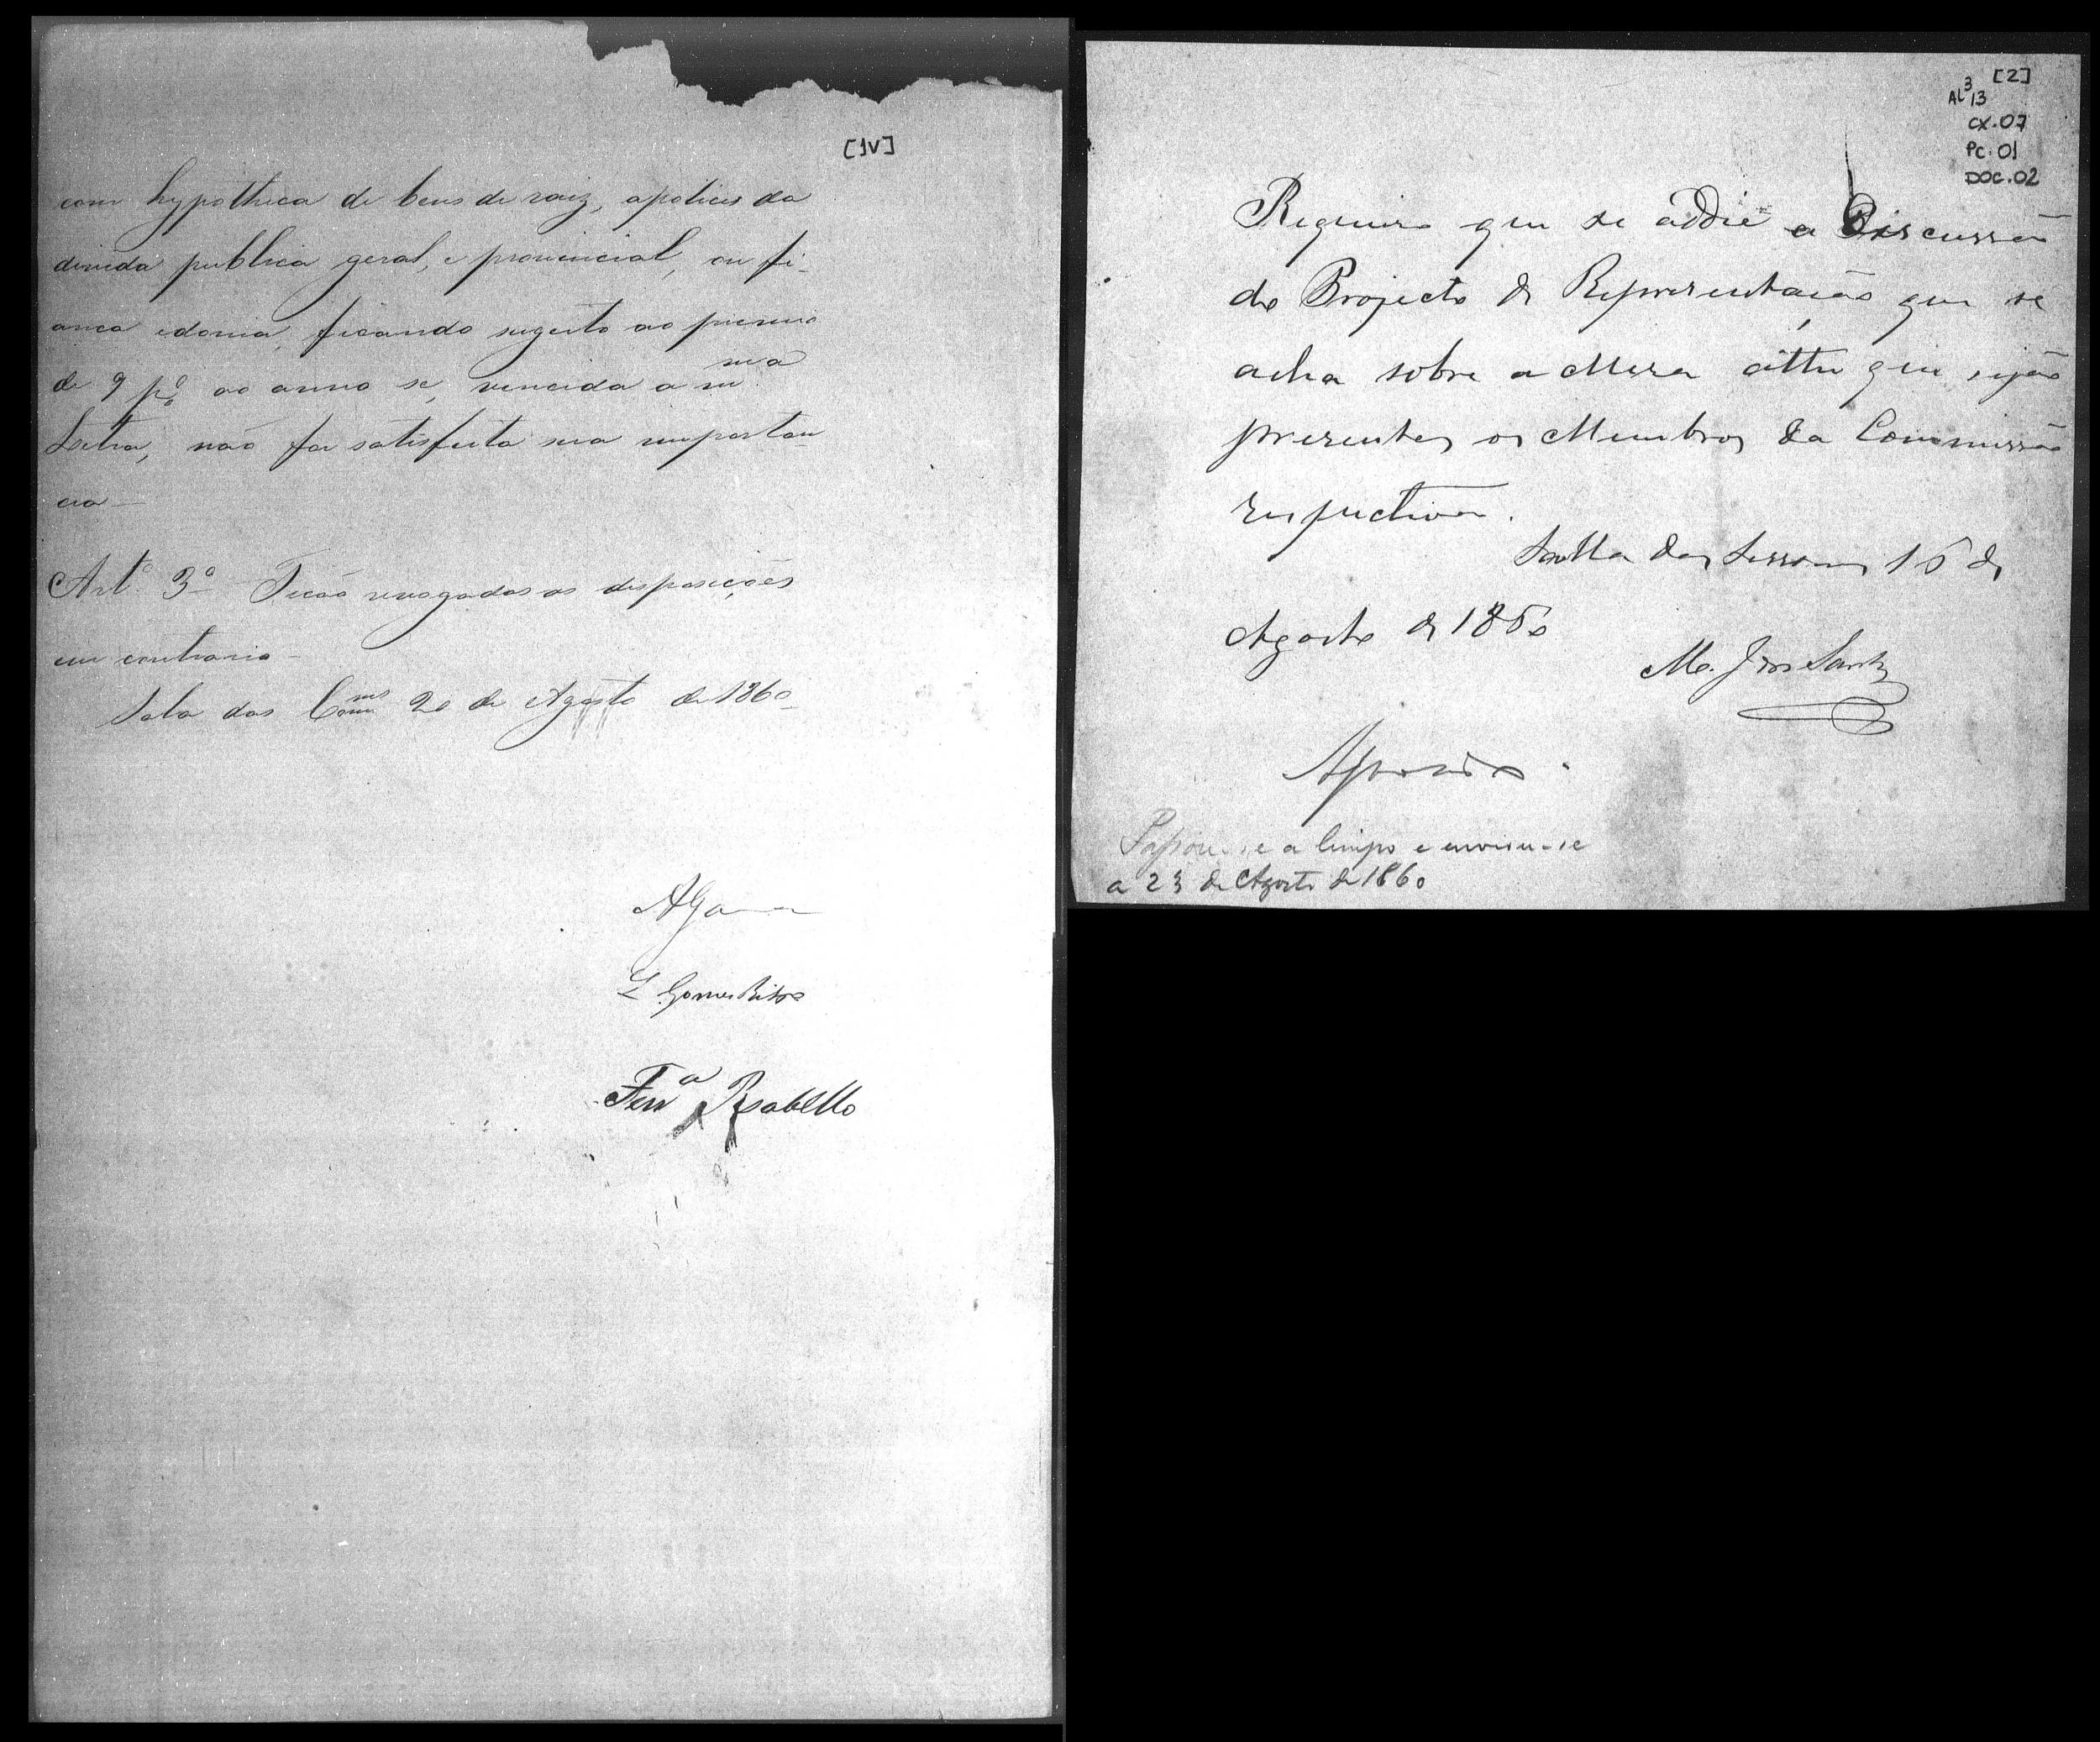 [1v]
com hypotheca de bens de raiz, apolices da
divida publica geral, e provincial, ou fi-
anca edonia, ficando sugeito ao premio
de 9 p% ao anno se, vencida a
sua
Letra, não for satisfeita sua importan
cia—
Artº 3º Ficão revogadas as disposições
em contrario—
Sala das Comms 20 de Agosto de 1860—
AGama
L Gomes Ribrº
Ferrª Rabello
[2]
AL 3 13
CX.07
PC.01
DOC.02
Requeiro que se addie a Discussão
do Projecto de Representação que se
acha sobre a Mesa atthe que sejão
presentes os Membros da Commissão
respectiva.
Salla das Sessoens 16 de
Agosto de 1860
M. Jose Santos
Aprovado.
Passou-se a limpo e enviou-se
a 23 de Agosto de 1860